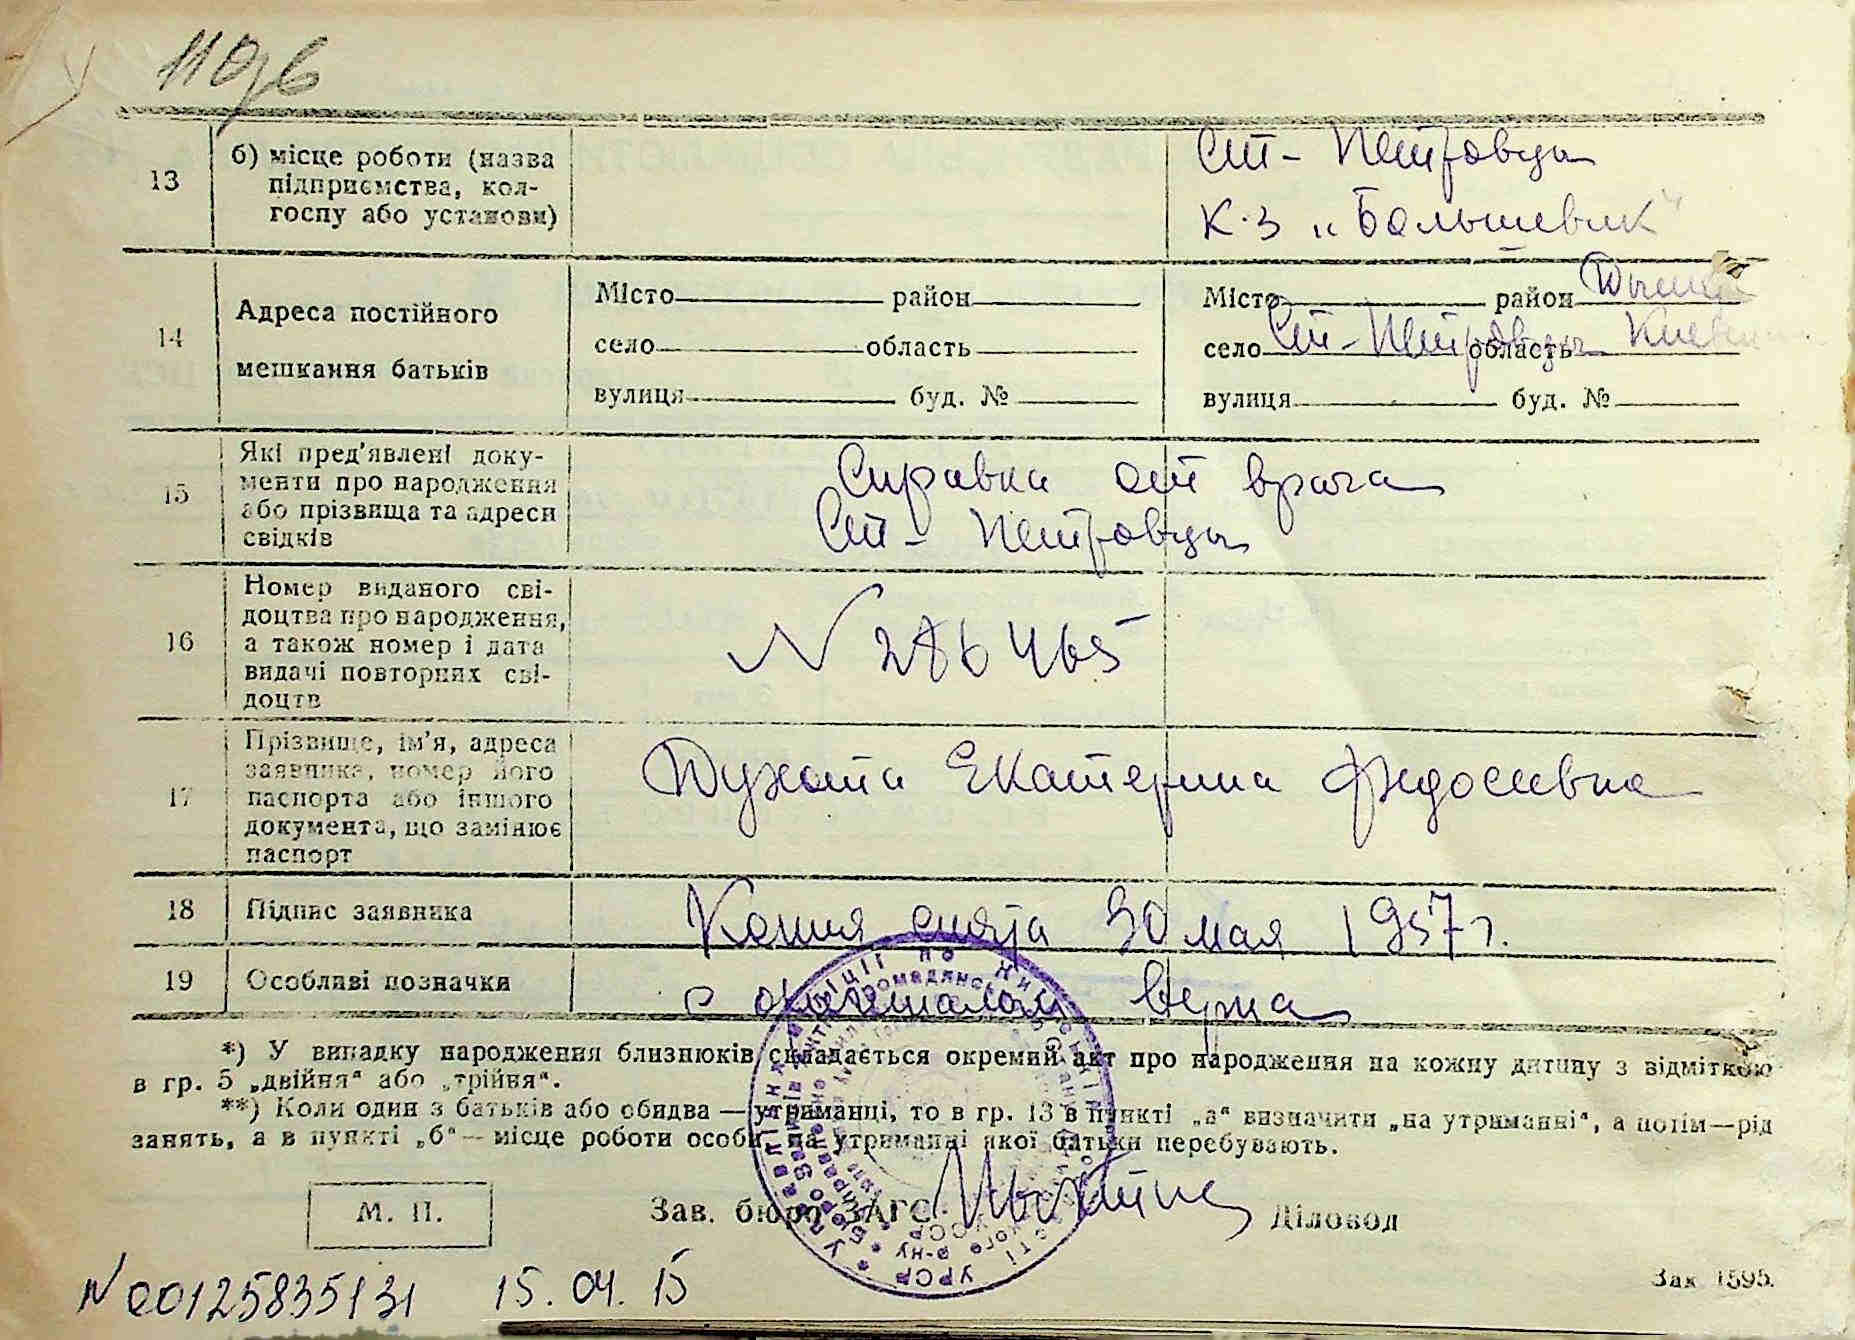 110
13 б) місце роботи (назва Ст-Петровцы
підприємства, кол-
госпу або установи) к-з „Большевик"
14 Адреса постійного мешкання батьків
Місто район Місто район
село область село Ст-Петровцы область Киевск
вулиця буд. № вулиця буд. №
15 Які пред'явлені доку-
менти про народження
або прізвища та адреси
свідків
Справка от врача
Ст-Петровцы
16 Номер виданого сві-
доцтва про народження,
а також номер і дата
видачі повторних сві-
доцтв
N 286465
17 Прізвище, ім'я, адреса
заявника, номер його
паспорта або іншого
документа, що замінює
паспорт
Екатерина Федосеевна
18 Підпис заявника Копия снята 30 мая 1957 г.
19 Особливі позначки с оригиналом верна
*) У випадку народження близнюків складається окремий акт про народження на кожну дитину з відміткою
в гр. 5 „двійня" або „трійня".
**) Коли один з батьків або обидва — утриманці, то в гр. 13 в пункті „а" визначити „на утриманні", а потім—рід
занять, а в пункті „б"— місце роботи особи, на утриманні якої батьки перебувають.
М. П. Зав. бюро ЗАГС Діловод
N 00125835131 15.04.15
Зак 1595.